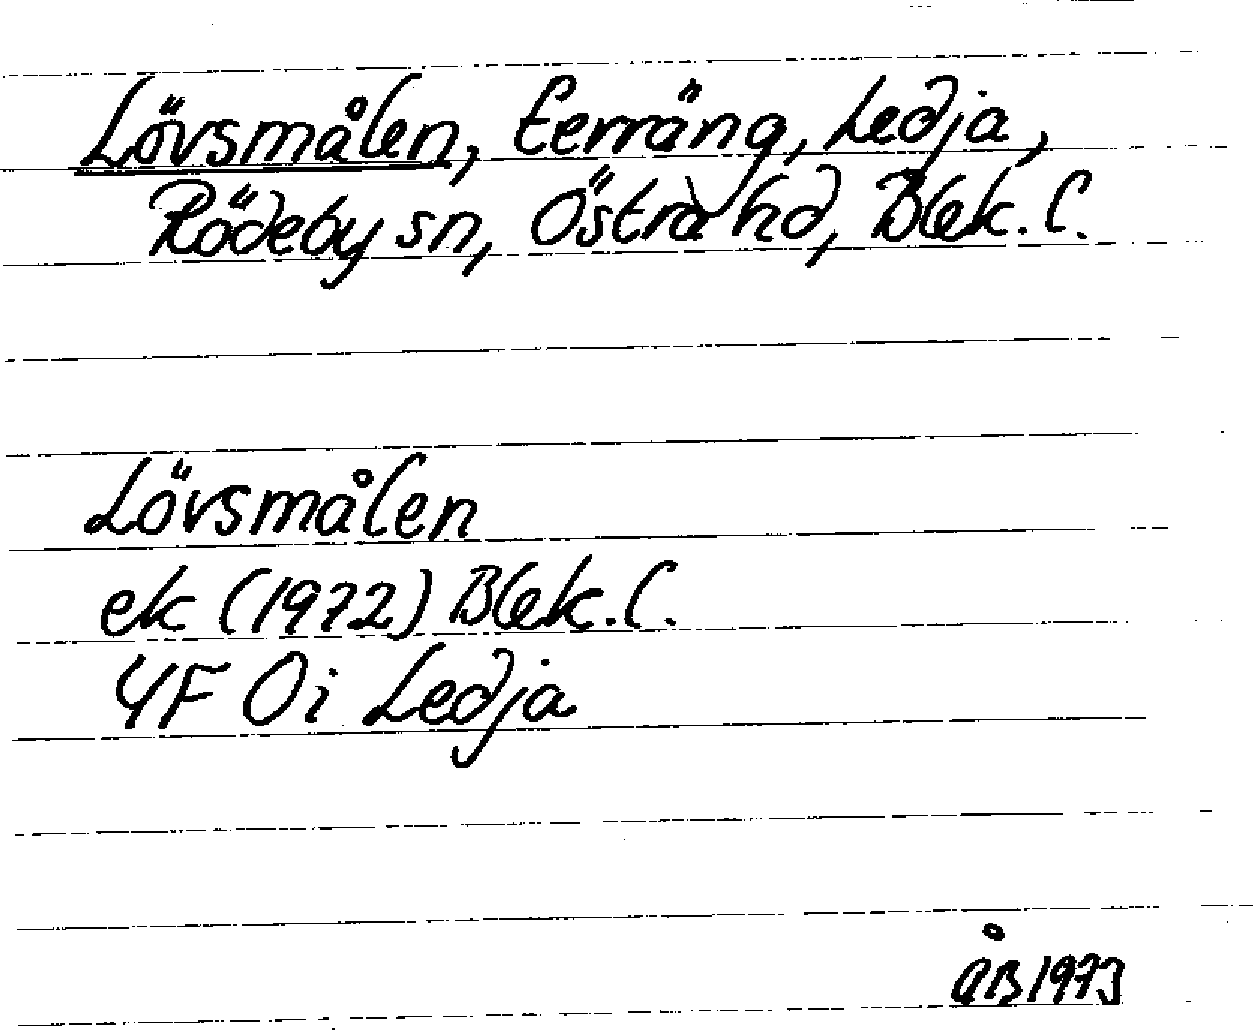 Lövsmålen, terräng, Ledja,
Rödeby sn, Östra hd, Blek. l.
Lövsmålen
ek (1972) Blek. l.
4F 0i Ledja
ÅB 1973